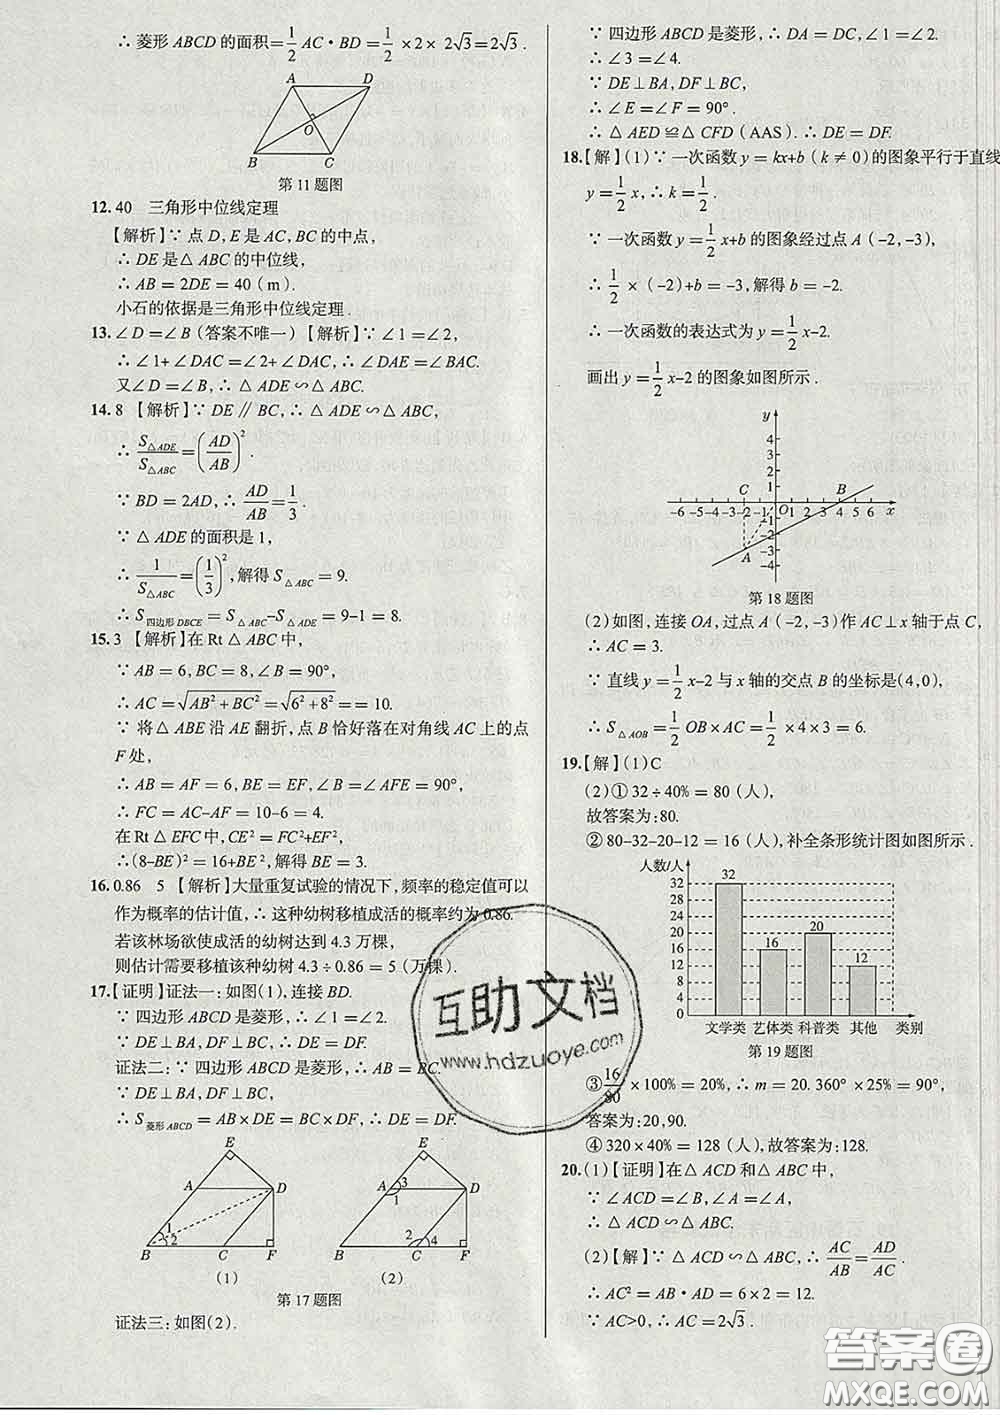 ∴ 菱形 ABCD 的面积=1/2 AC·BD=1/2×2×2√3=2√3.
A D
O
B C
第 11 题图
12.40 三角形中位线定理
【解析】∵ 点 D,E 是 AC,BC 的中点,
∴ DE 是△ ABC 的中位线,
∴ AB = 2DE = 40(m).
小石的依据是三角形中位线定理.
13.∠D =∠B(答案不唯一)【解析】∵ ∠1 =∠2,
∴ ∠1+∠DAC =∠2+∠DAC,∴ ∠DAE =∠BAC.
又∠D =∠B,∴ △ ADE ∽△ ABC.
14.8 【解析】∵ DE∥BC,∴ △ ADE ∽△ ABC,
∴ S△ADE/S△ABC=(AD/AB)².
∵ BD = 2AD,∴ AD/AB=1/3.
∵ △ ADE 的面积是 1,
∴ 1/S△ABC=(1/3)²,解得 S△ABC = 9.
∴ S四边形DBCE = S△ABC–S△ADE = 9–1 = 8.
15.3 【解析】在 Rt △ ABC 中,
∵ AB = 6,BC = 8,∠B = 90°,
∴ AC = √(AB²+BC²) = √(6²+8²) == 10.
∵ 将△ ABE 沿 AE 翻折,点 B 恰好落在对角线 AC 上的点
F 处,
∴ AB = AF = 6,BE = EF,∠B =∠AFE = 90°,
∴ FC = AC–AF = 10–6 = 4.
在 Rt △ EFC 中,CE² = FC²+EF²,
∴(8–BE)² = 16+BE²,解得 BE = 3.
16.0.86 5 【解析】大量重复试验的情况下,频率的稳定值可以
作为概率的估计值,∴ 这种幼树移植成活的概率约为 0.86.
若该林场欲使成活的幼树达到 4.3 万棵,
则估计需要移植该种幼树 4.3÷0.86 = 5(万棵).
17.【证明】证法一:如图(1),连接 BD.
∵ 四边形 ABCD 是菱形,∴ ∠1 =∠2.
∵ DE⊥BA,DF⊥BC,∴ DE = DF.
证法二:∵ 四边形 ABCD 是菱形,∴ AB = BC.
∵ DE⊥BA,DF⊥BC,
∴ S菱形ABCD = AB×DE = BC×DF,∴ DE = DF.
E
A D
1
2
B C F
(1)
E
A 3 D
1
2 4
B C F
(2)
第 17 题图
证法三:如图(2).
∵ 四边形 ABCD 是菱形,∴ DA = DC,∠1 =∠2.
∴ ∠3 =∠4.
∵ DE⊥BA,DF⊥BC,
∴ ∠E =∠F = 90°.
∴ △ AED ≌△ CFD(AAS). ∴ DE = DF.
18.【解】(1)∵ 一次函数 y = kx+b(k ≠ 0)的图象平行于直线
y = 1/2 x,∴ k = 1/2.
∵ 一次函数 y = 1/2 x+b 的图象经过点 A(–2,–3),
∴ 1/2×(–2)+b = –3,解得 b = –2.
∴ 一次函数的表达式为 y = 1/2 x–2.
画出 y = 1/2 x–2 的图象如图所示.
y
4
3
2
1
C B
-6 -5 -4 -3 -2 -1 O 1 2 3 4 5 6 x
-1
-2
-3
-4
A
第 18 题图
(2)如图,连接 OA,过点 A(–2,–3)作 AC⊥x 轴于点 C,
∴ AC = 3.
∵ 直线 y = 1/2 x–2 与 x 轴的交点 B 的坐标是(4,0),
∴ S△AOB = 1/2 OB×AC = 1/2×4×3 = 6.
19.【解】(1)C
(2)① 32÷40% = 80(人),
故答案为:80.
② 80–32–20–12 = 16(人),补全条形统计图如图所示.
人数/人
32
28
24
20
16
12
8
4
0
32 16 20 12
文学类 艺体类 科普类 其他 类别
第 19 题图
③ 16/80×100% = 20%,∴ m = 20. 360°×25% = 90°,
答案为:20,90.
④ 320×40% = 128(人),故答案为:128.
20.(1)【证明】在△ ACD 和△ ABC 中,
∵ ∠ACD =∠B,∠A =∠A,
∴ △ ACD ∽△ ABC.
(2)【解】∵ △ ACD ∽△ ABC,∴ AC/AB=AD/AC.
∴ AC² = AB·AD = 6×2 = 12.
∵ AC>0,∴ AC = 2√3.
互助文档
www.hdzuoye.com
答案圈
MXQE.COM